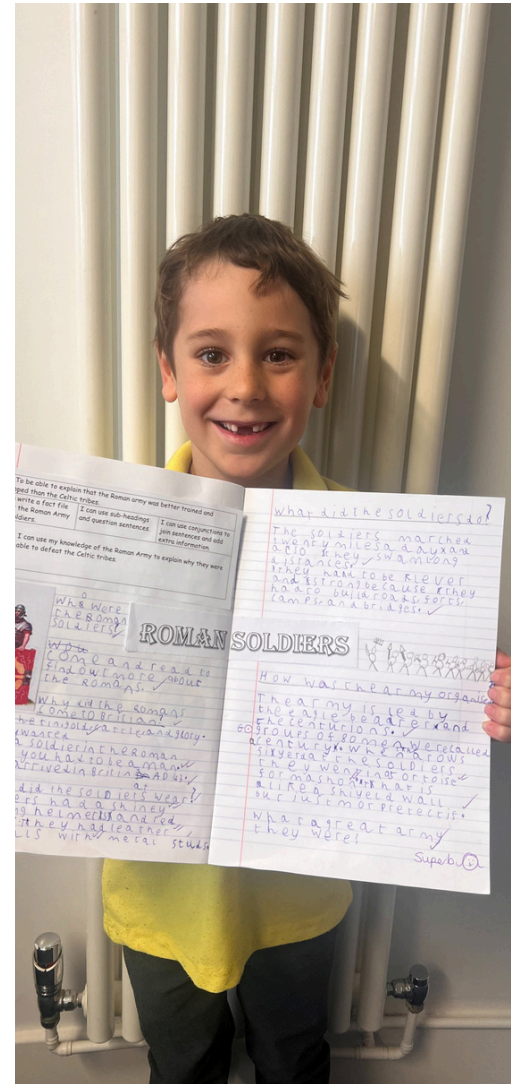 To be able to explain that the Roman army was better trained and
ped than the Celtic tribes.
write a fact file
the Roman Army
ldiers.
I can use sub-headings
and question sentences
I can use conjunctions to
join sentences and add
extra information.
I can use my knowledge of the Roman Army to explain why they were
able to defeat the Celtic tribes.
Who Were
the Roman
soldiers
ROMAN SOLDIERS
Come and read to
find out more about
the Romans.
Why did the Romans
come to
wanted
a soldier in the Roman
you had to be a man.
arrived in AD 43.
did the soldiers wear?
ers had a shiney
helmets and red
they had leather
with metal studs
What did the soldiers do?
The soldiers marched
twenty miles a day and
also they swam long
distances.
they had to be klever
and strong because they
had to build roads, forts,
camps and bridges.
How was the army organise
The army is led by
the eagle and
the centurions.
groups of 80 men were called
a century. When arows
at the soldiers
they went in a tortoise
that is
like a shield wall
but just mor
What a great army
they were!
Superb